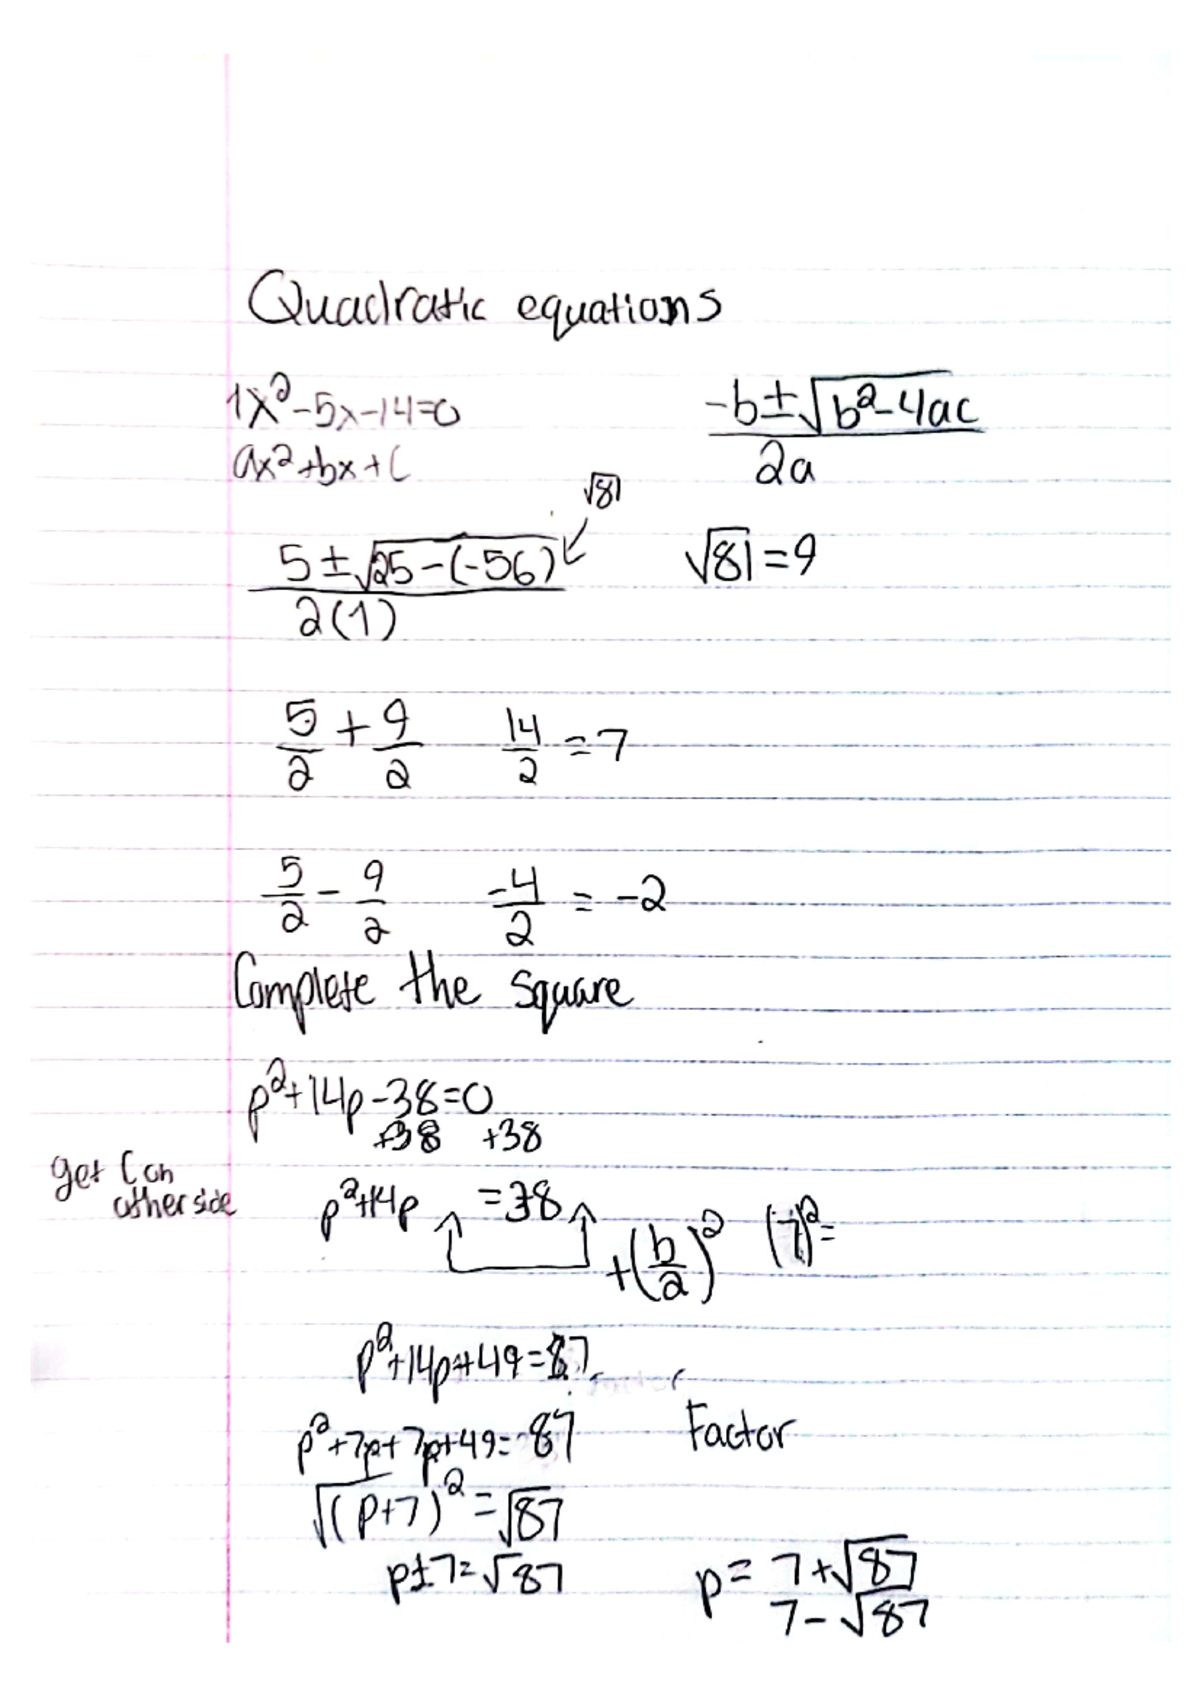 Quadratic equations
1x²-5x-14=0
ax²+bx+C
-b±√b²-4ac
2a
√81
5±√25-(-56)
2(1)
√81=9
5/2 + 9/2 14/2 =7
5/2 - 9/2 -4/2 = -2
Complete the square
p²+14p-38=0
+38 +38
get C on
other side
p²+14p =38
+(b/2)² (7)²=
p²+14p+49=87
p²+7p+7p+49=87 Factor
√(p+7)²=√87
p±7=√87
p= 7+√87
7-√87